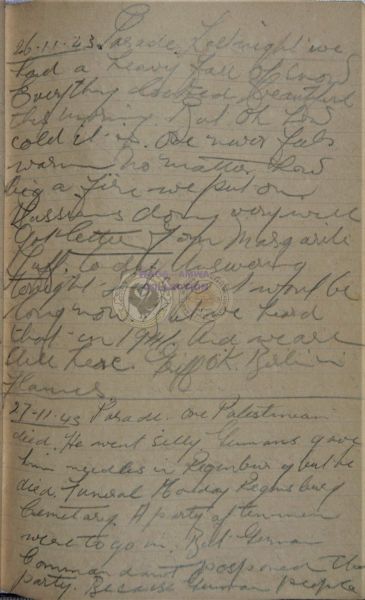 26-11-43. Parade. Last night we
had a heavy fall of snow
Everything looked beautiful
this morning. But Oh how
cold it is. One never feels
warm no matter how
big a fire we put on.
Russians doing very well
Got letter from Margarite
to day Answering
tonight. it wont be
long now. But we heard
that in 1941 And we are
still here. Griff OK. Berlin in
Flames.
27-11-43 Parade. one Palestinean
died. He went silly Germans gave
him needles in Regensburg but he
died. Funeral Monday Regensburg
Cemetary. A party of ten men
were to go in. But German
Commandant postponed the
party. Because German people